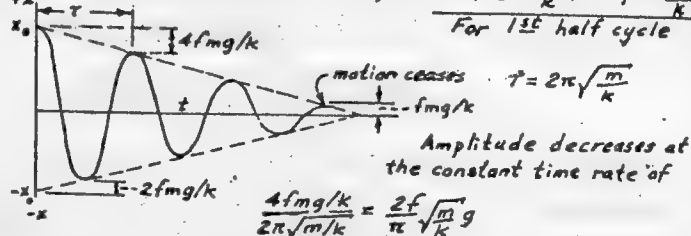 For 1st half cycle
x₀
τ
4fmg/k
motion ceases
τ = 2π√(m/k)
t
fmg/k
Amplitude decreases at
the constant time rate of
-x₀
-x
2fmg/k
(4fmg/k)/(2π√(m/k)) = (2f/π)√(m/k) g